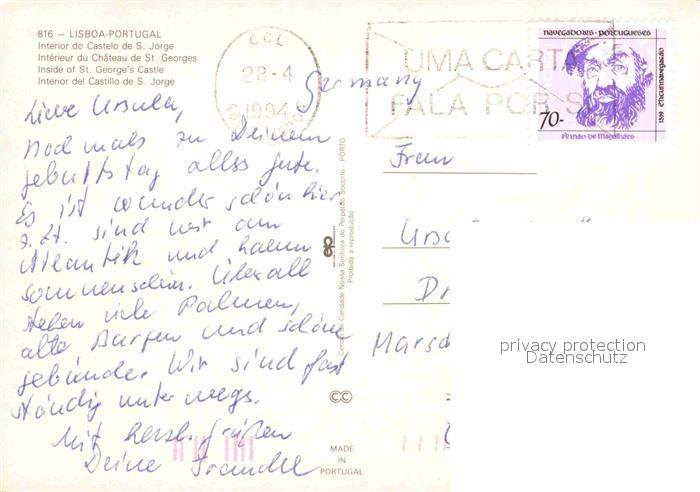 816 — LISBOA-PORTUGAL
Interior do Castelo de S. Jorge
Intérieur du Château de St. Georges
Inside of St. George's Castle
Interior del Castillo de S. Jorge
Liebe Ursula,
Nochmals zu Deinem
Geburtstag alles gute.
Es ist wunderschön hier
z.Zt. sind wir am
Atlantik und haben
Sonnenschein. Überall
stehen viele Palmen,
alte Burgen und schöne
gebäude. Wir sind fast
ständig unterwegs.
Mit herzl. grüßen
Deine
CCL
28-4
1994
Germany
UMA CARTA
FALA POR SI
NAVEGADORES · PORTUGUESES
1519 CIRCUM-NAVEGAÇÃO
70-
FERNÃO DE MAGALHÃES
Centro de Caridade Nossa Senhora do Perpétuo Socorro PORTO
Proibida a reprodução
Frau
MADE
IN
PORTUGAL
privacy protection
Datenschutz